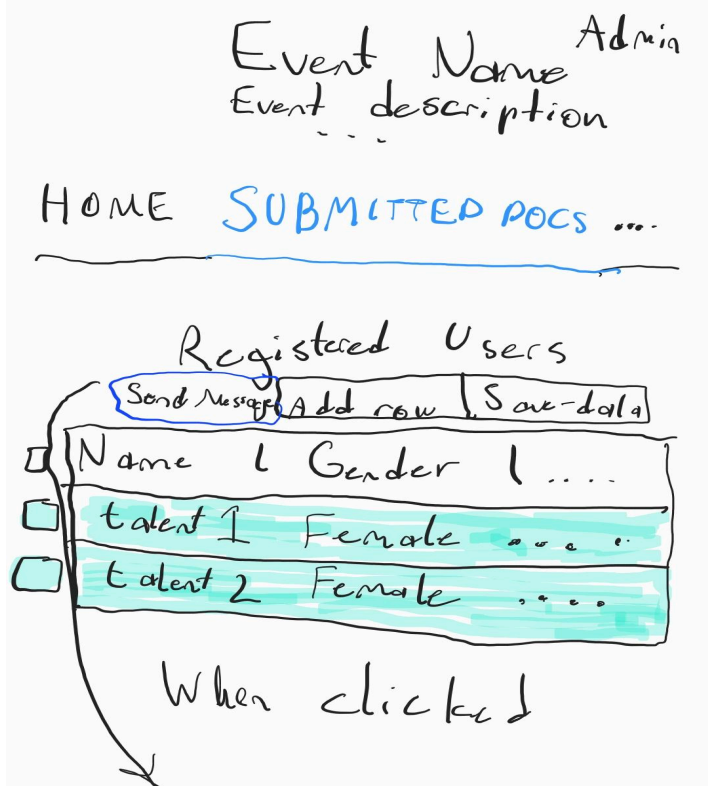 Admin
Event Name
Event description
...
HOME SUBMITTED DOCS ....
Registered Users
Send Message Add row Save-data
Name | Gender | ....
talent 1 Female ....
talent 2 Female ....
When clicked